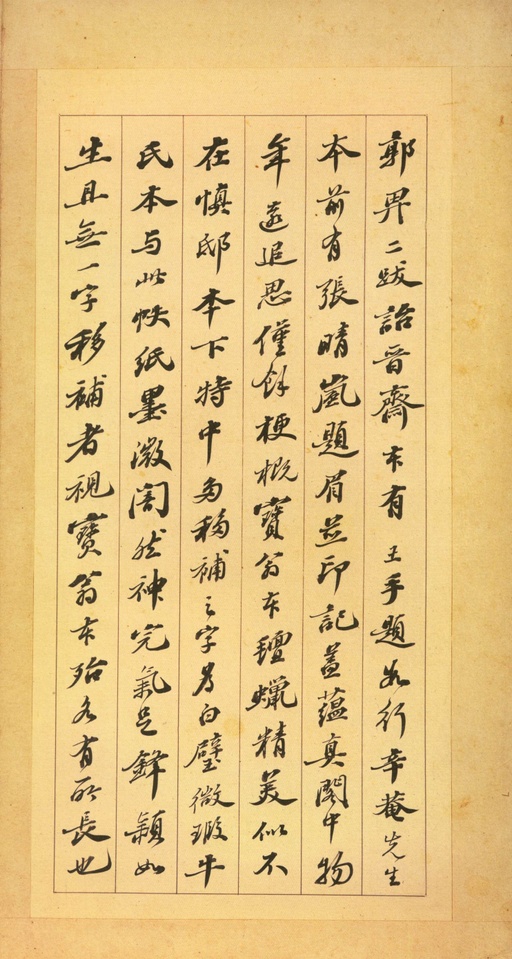 郭畀二跋詒晉齋本有王手題數行辛菴先生
本前有張晴嵐題眉並印記蓋蘊真閣中物
年遠追思僅餘梗概寶翁本氊蠟精美似不
在慎邸本下特中多移補之字為白璧微瑕牛
氏本与此帙紙墨微闇然神完氣足鋒穎如
生且無一字移補者視寶翁本殆各有所長也